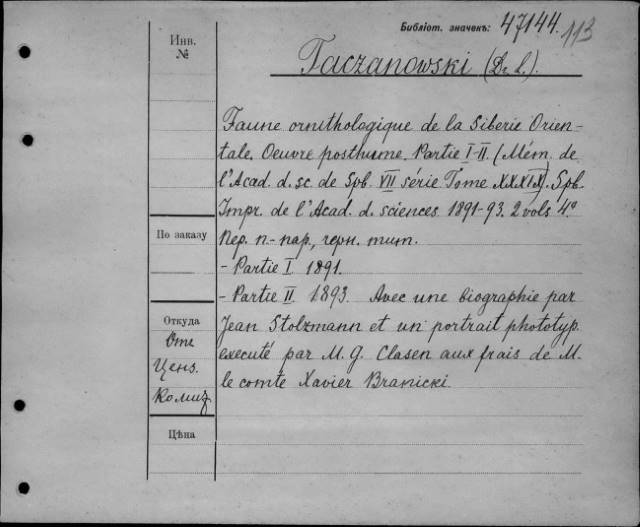 Библіот. значекъ: 47144. 113
Инв.
№
Taczanowski (Dr L.).
Faune ornithologique de la Siberie Orien-
tale. Oeuvre posthume. Partie I-II. (Mém. de
l'Acad. d. sc. de Spb. VII série Tome XXXIX). Spb.
Impr. de l'Acad. d. sciences 1891-93. 2 vols 4°
По заказу
Пер. п.-пар., черн. тит.
- Partie I 1891.
- Partie II 1893. Avec une biographie par
Откуда
Jean Stolzmann et un portrait phototyp.
Отъ
executé par M. G. Clasen aux frais de M.
Ценз.
le comte Xavier Branicki.
Комит
Цѣна